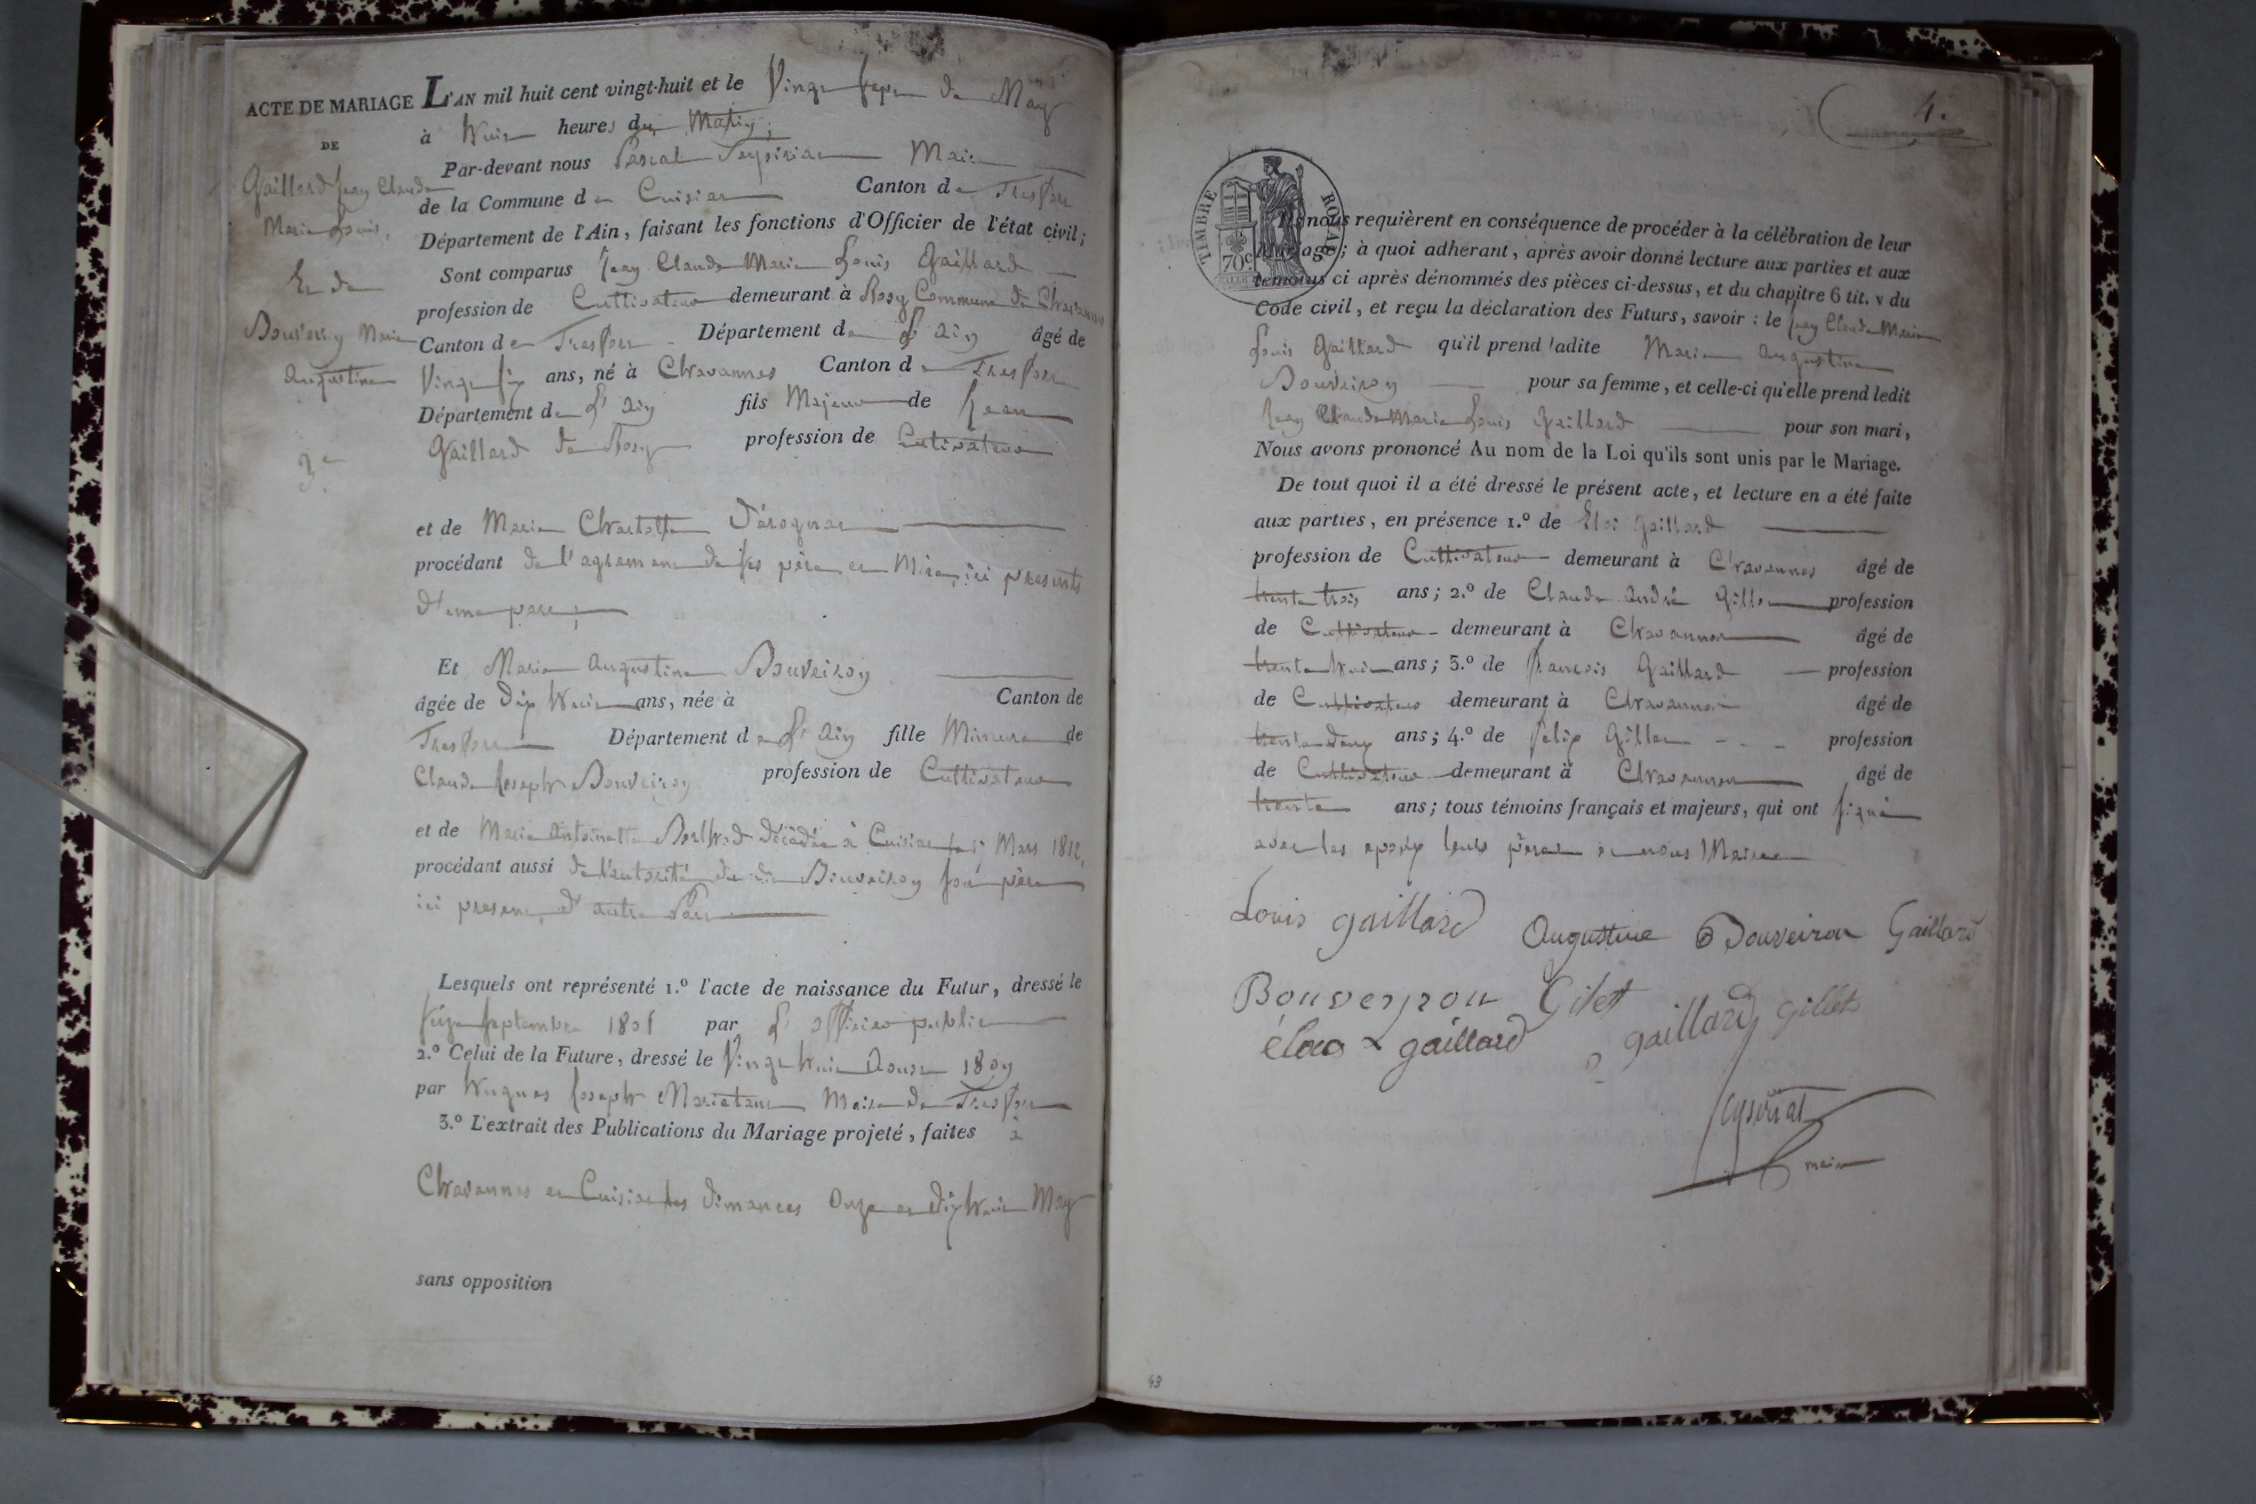 ACTE DE MARIAGE L'AN mil huit cent vingt-huit et le Vingt Sept de May
DE
à huit heures du Matin,
Par-devant nous Pascal Peysiriat Maire
Gaillard Jean Claude
Marie Louis,
Et de
Bouveiroy Marie
Augustine
3e
de la Commune de Cuisiat Canton de Treffort
Département de l'Ain, faisant les fonctions d'Officier de l'état civil;
Sont comparus Jean Claude Marie Louis Gaillard
profession de Cultivateur demeurant à Rosy Commune de Chavannes
Canton de Treffort Département de L'ain âgé de
Vingt Six ans, né à Chavannes Canton de Treffort
Département de L'ain fils Majeur de Jean
Gaillard de Rosy profession de Cultivateur
et de Marie Charlotte
procédant de l'agrement de ses père et Mère, ici presents
d'une part,
Et Marie Augustine Bouveiroy
âgée de Dix huit ans, née à Canton de
Treffort Département de L'ain fille Mineure de
Claude Joseph Bouveiroy profession de Cultivateur
et de Marie Antoinette décédée à Cuisiat Mars 1812,
procédant aussi de l'autorité du dit Bouveiroy son père
ici present, d'autre Part
Lesquels ont représenté 1.º l'acte de naissance du Futur, dressé le
Seize Septembre 1801 par L'officier public
2.º Celui de la Future, dressé le Vingt huit Aoust 1809
par hugues Joseph Maire de Treffort
3.º L'extrait des Publications du Mariage projeté, faites à
Chavannes et Cuisiat les dimances Onze et dix huit May
sans opposition
4.
TIMBRE ROYAL
70 c
Ils nous requièrent en conséquence de procéder à la célébration de leur
Mariage; à quoi adherant, après avoir donné lecture aux parties et aux
témoins ci après dénommés des pièces ci-dessus, et du chapitre 6 tit. v du
Code civil, et reçu la déclaration des Futurs, savoir : le Jean Claude Marie
Louis Gaillard qu'il prend ladite Marie Augustine
Bouveiroy pour sa femme, et celle-ci qu'elle prend ledit
Jean Claude Marie Louis Gaillard pour son mari,
Nous avons prononcé Au nom de la Loi qu'ils sont unis par le Mariage.
De tout quoi il a été dressé le présent acte, et lecture en a été faite
aux parties, en présence 1.º de Eloi Gaillard
profession de Cultivateur demeurant à Chavannes âgé de
trente trois ans; 2.º de Claude André Gillet profession
de Cultivateur demeurant à Chavannes âgé de
trente huit ans; 3.º de francois Gaillard profession
de Cultivateur demeurant à Chavannes âgé de
trente deux ans; 4.º de felix Gillet profession
de Cultivateur demeurant à Chavannes âgé de
trente ans; tous témoins français et majeurs, qui ont signé
avec les epoux leurs pères et nous Maire
Louis gaillard Augustine Bouveiron Gaillard
Bouveyron Gilet
gaillard gaillard gillet
Peysiriat
maire
43